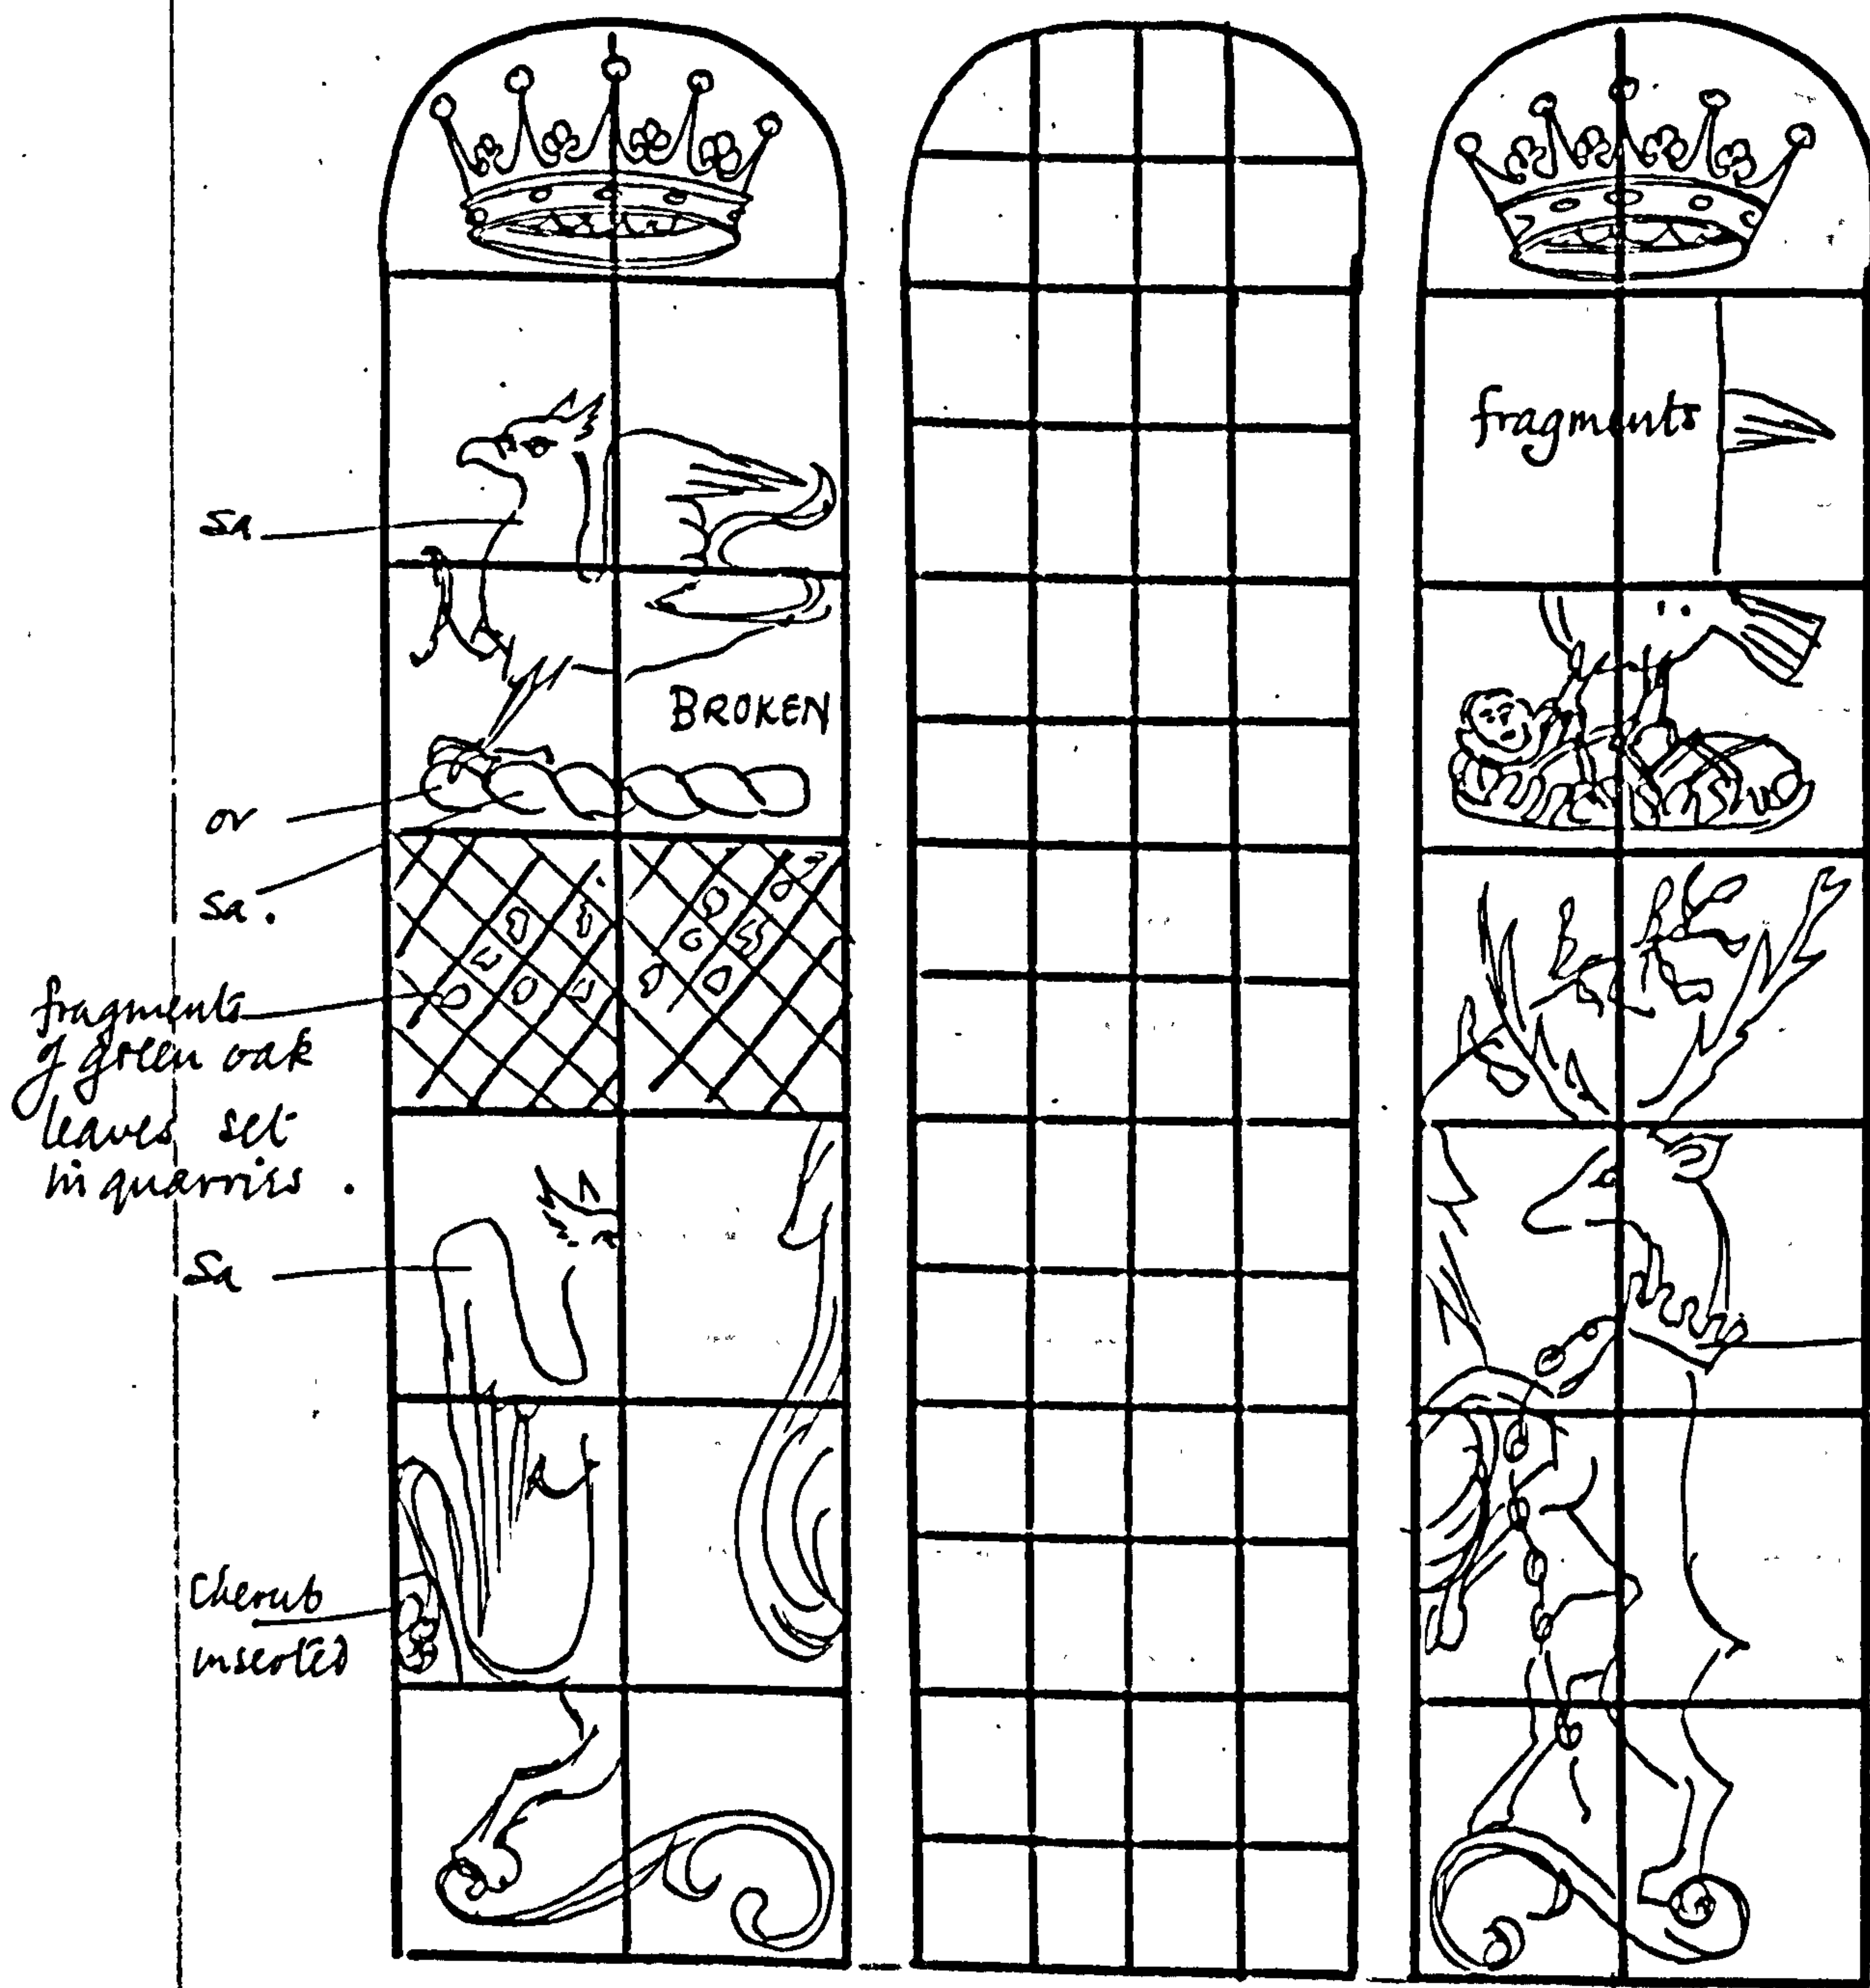 fragments
Sa
BROKEN
or
Sa.
fragments
of green oak
leaves set
in quarries.
Sa
Cherub
inserted